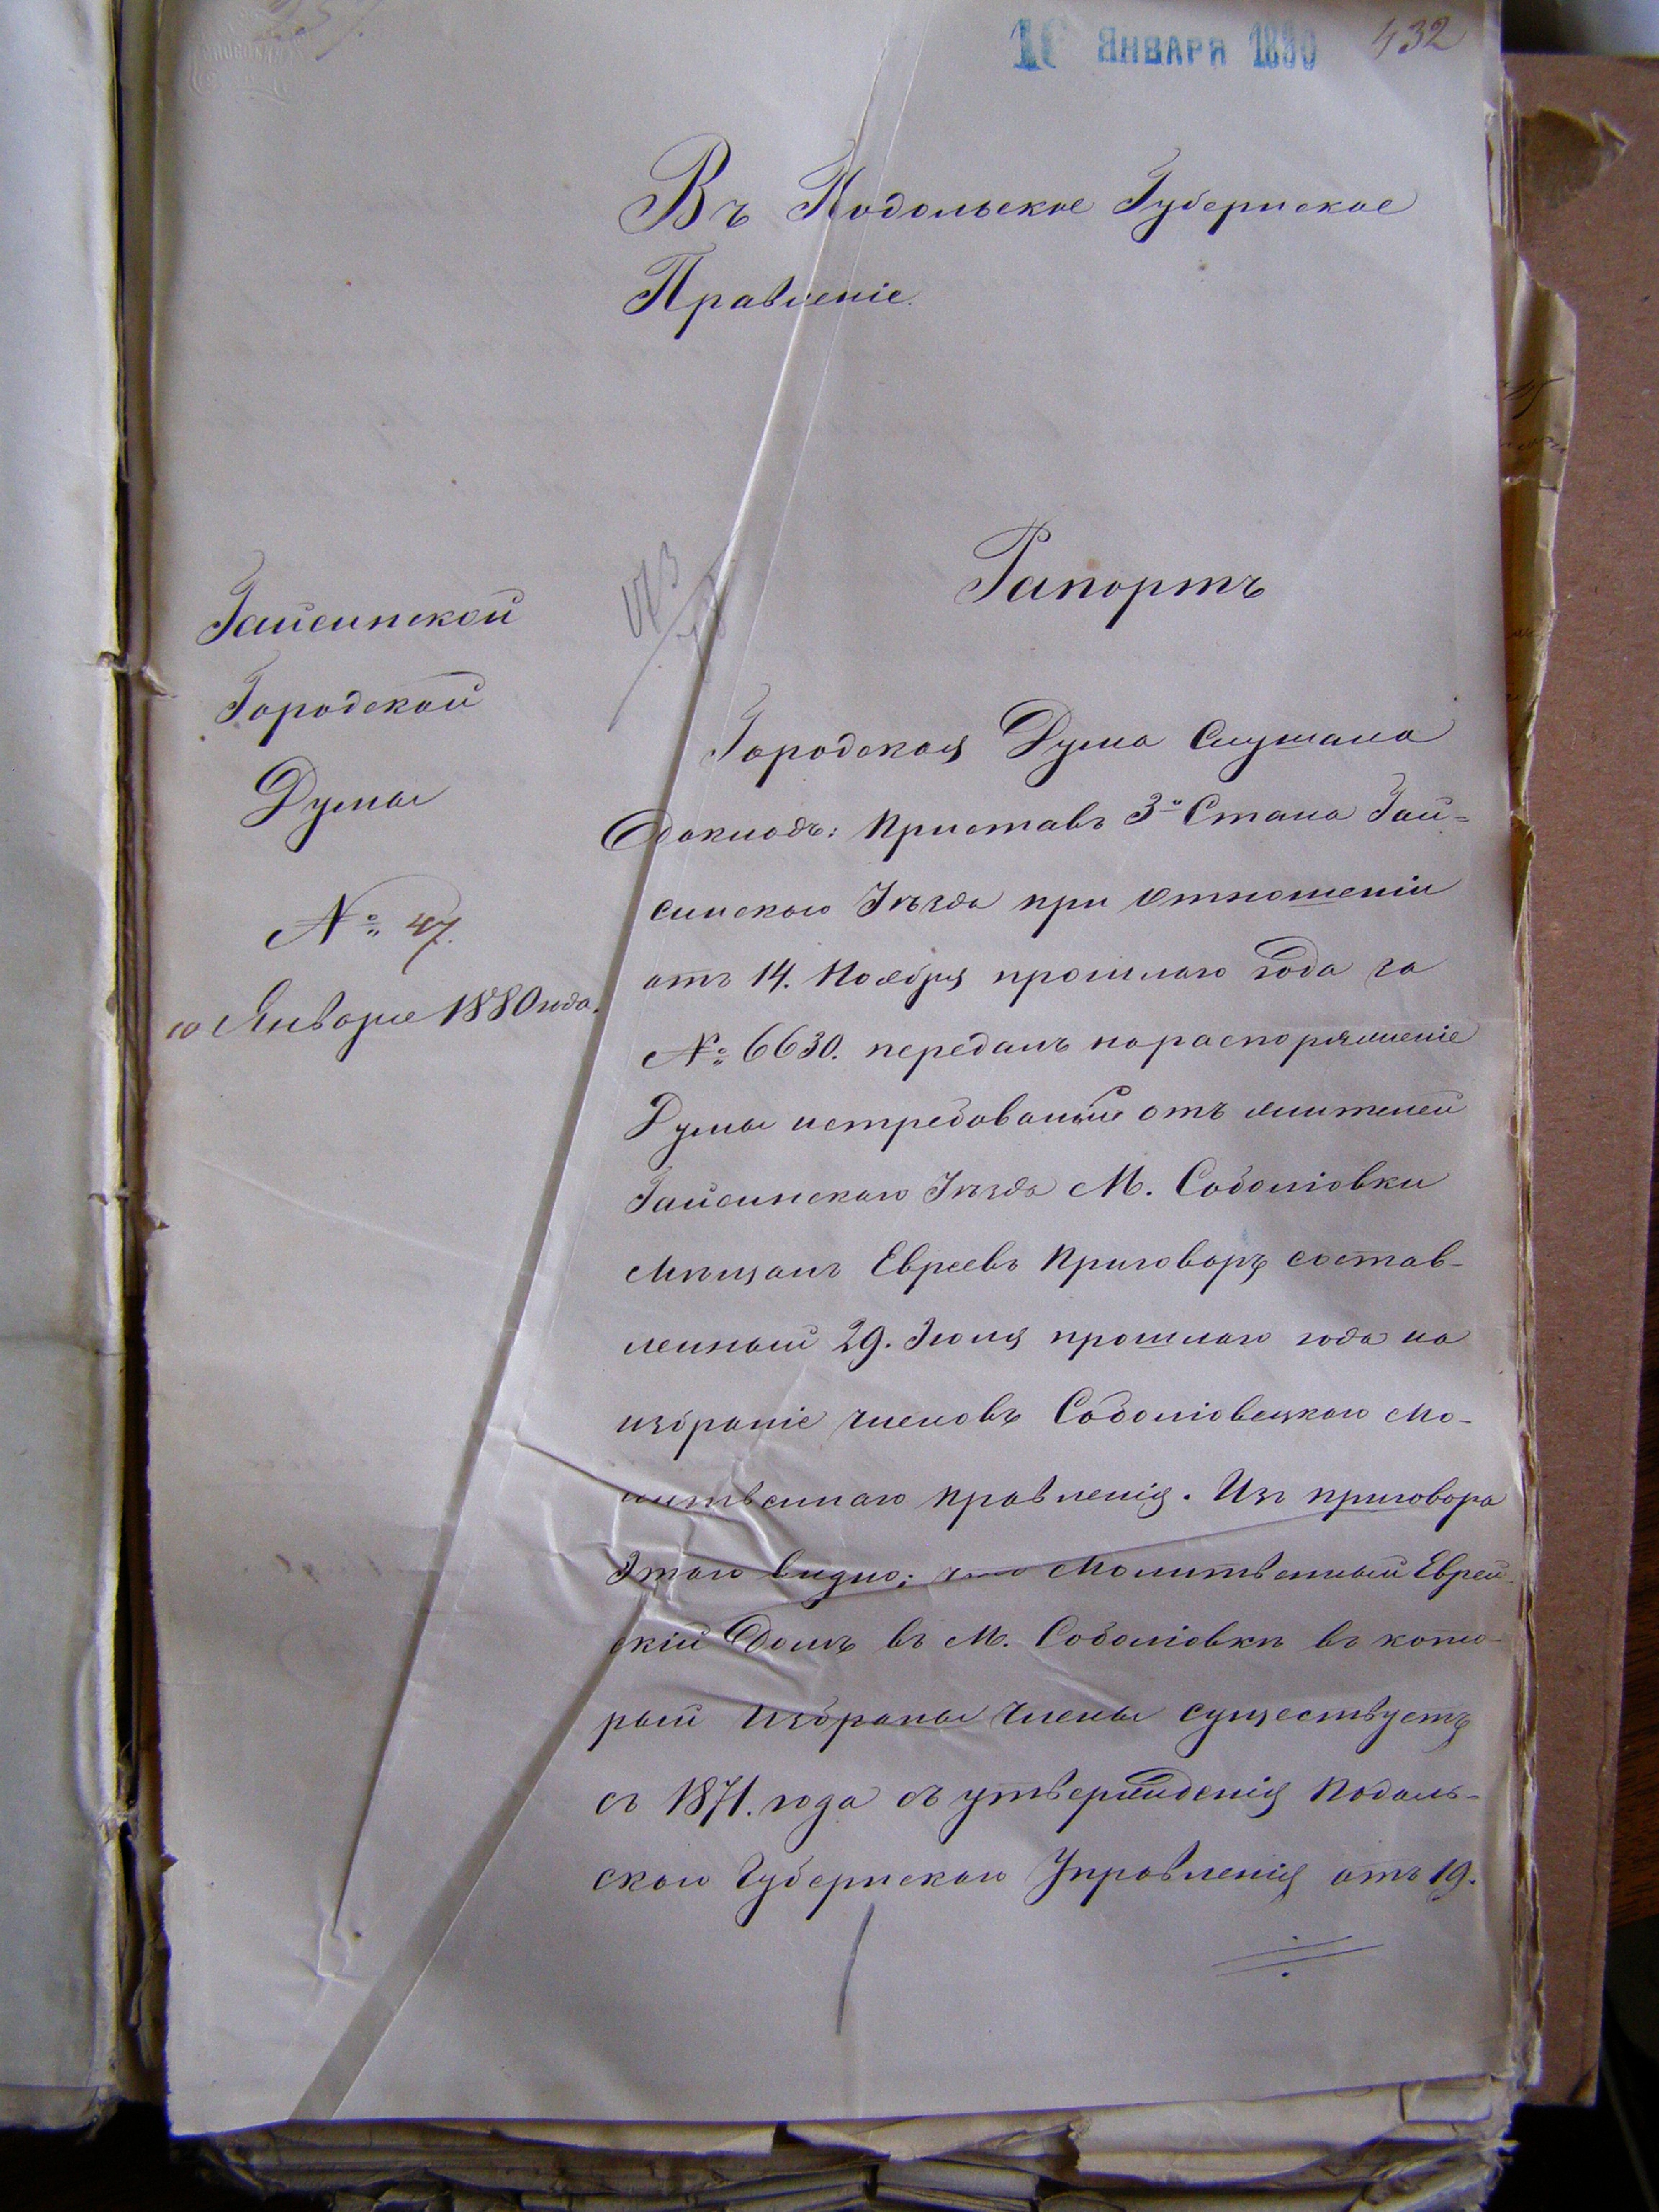 16 ЯНВАРЯ 1880
432
Въ Подольское Губернское
Правленіе.
Гайсинской
Городской
Думы
№ 47.
10 Января 1880 года.
Рапортъ
Городская Дума слушала
докладъ: Приставъ 3го Стана Гай=
синскаго Уѣзда при отношеніи
отъ 14. Ноября прошлаго года за
№ 6630. передалъ на распоряженіе
Думы истребованный отъ жителей
Гайсинскаго Уѣзда М. Соболіовки
Мѣщанъ Евреевъ Приговоръ состав-
ленный 29. Іюля прошлаго года на
избраніе членовъ Соболіовецкаго мо-
литвеннаго правленія. Изъ приговора
этаго видно; что Молитвенный Еврей-
скій Домъ въ М. Соболіовкѣ въ кото-
рый избраны члены существуетъ
съ 1871. года съ утвержденія Подоль-
скаго Губернскаго Управленія отъ 19.